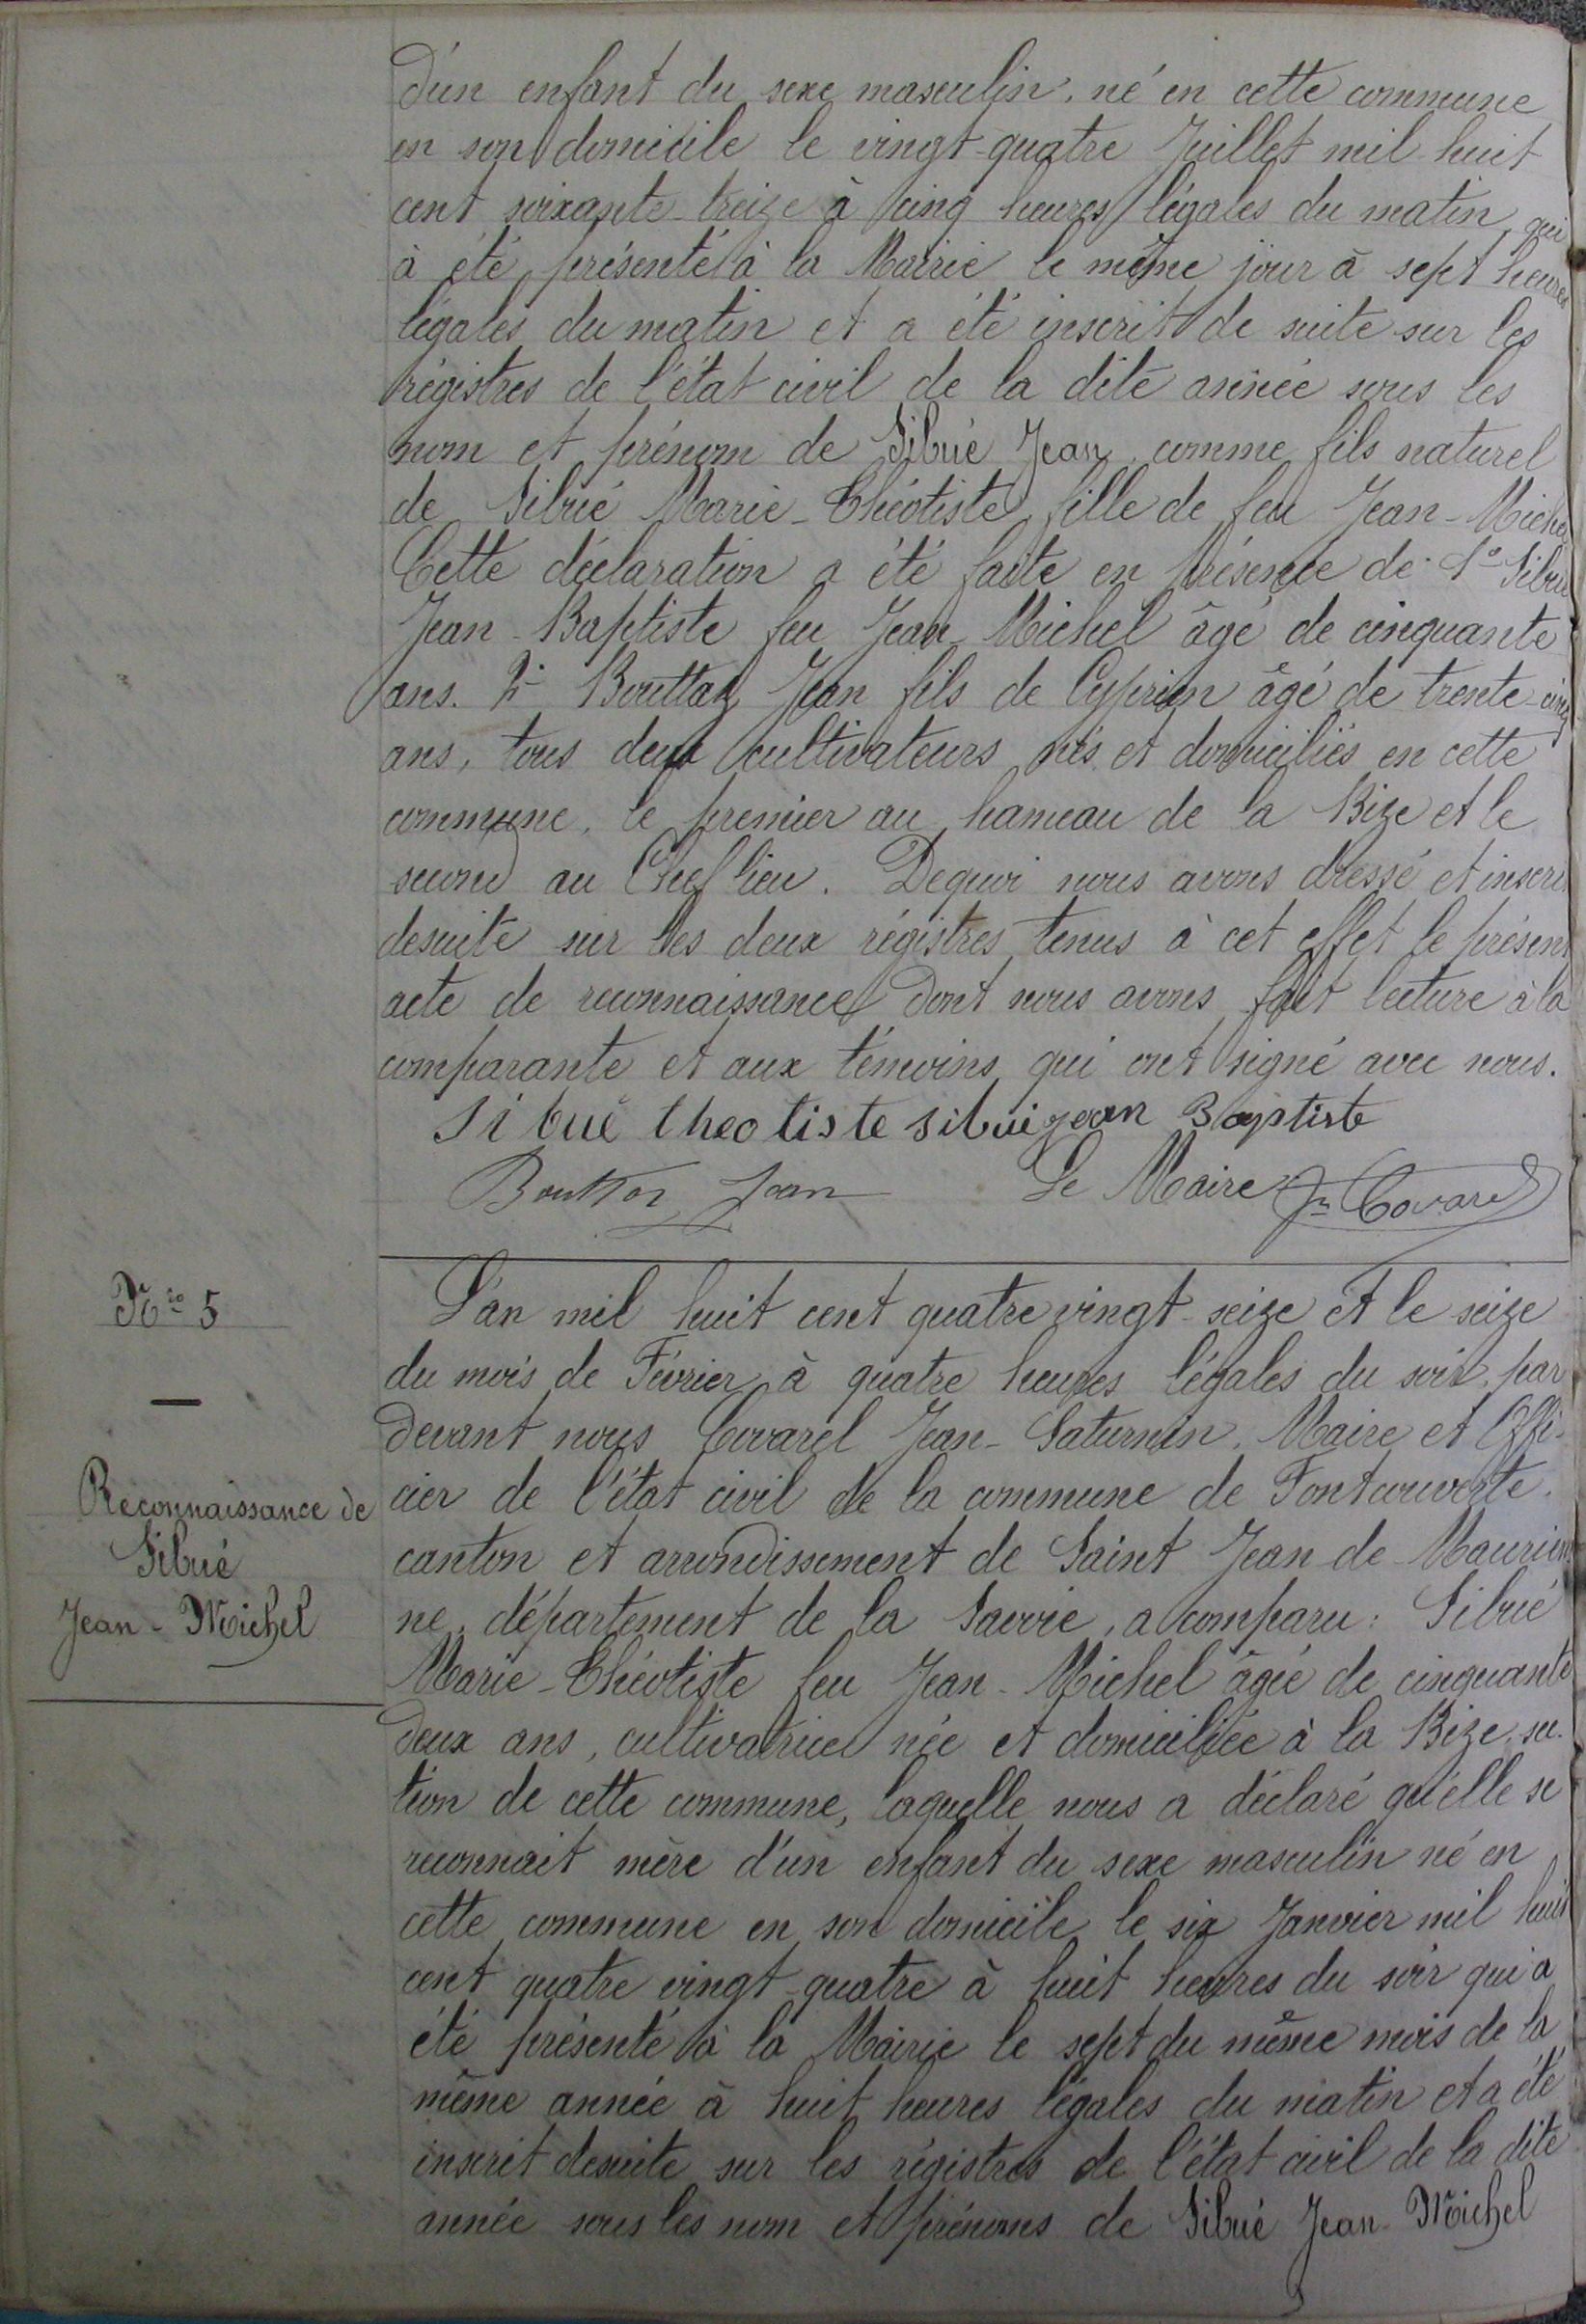 d'un enfant du sexe masculin, né en cette commune
en son domicile le vingt-quatre Juillet mil huit
cent soixante-treize à cinq heures légales du matin, qui
à été présenté à la Mairie le même jour à sept heures
légales du matin et a été inscrit de suite sur les
régistres de l'état civil de la dite année sous les
nom et prénom de Sibué Jean, comme fils naturel
de Sibué Marie-Théotiste, fille de feu Jean-Michel
Cette déclaration a été faite en présence de 1º Sibué
Jean-Baptiste feu Jean-Michel âgé de cinquante
ans. 2º Bouttaz Jean fils de Cyprien âgé de trente-cinq
ans, tous deux cultivateurs nés et domiciliés en cette
commune, le premier au hameau de la Bize et le
second au Chef lieu. Dequoi nous avons dressé et inscrit
desuite sur les deux régistres tenus à cet effet le présent
acte de reconnaissance dont nous avons fait lecture à la
comparante et aux témoins qui ont signé avec nous.
Sibué theotiste sibué jean Baptiste
Bouttaz Jean Le Maire Jn Covarel
Nro 5
Reconnaissance de
Sibué
Jean-Michel
L'an mil huit cent quatre vingt-seize et le seize
du mois de Février à quatre heures légales du soir, par
devant nous Covarel Jean-Saturnin, Maire et Offi-
cier de l'état civil de la commune de Fontcouverte,
canton et arrondissement de Saint Jean de Maurien
ne, département de la Savoie, a comparu: Sibué
Marie-Théotiste feu Jean-Michel âgée de cinquante
deux ans, cultivatrice née et domiciliée à la Bize, sec-
tion de cette commune, laquelle nous a déclaré qu'elle se
reconnait mère d'un enfant du sexe masculin né en
cette commune en son domicile le six Janvier mil huit
cent quatre vingt-quatre à huit heures du soir qui a
été présenté à la Mairie le sept du même mois de la
même année à huit heures légales du matin et a été
inscrit desuite sur les régistres de l'état civil de la dite
année sous les nom et prénoms de Sibué Jean-Michel